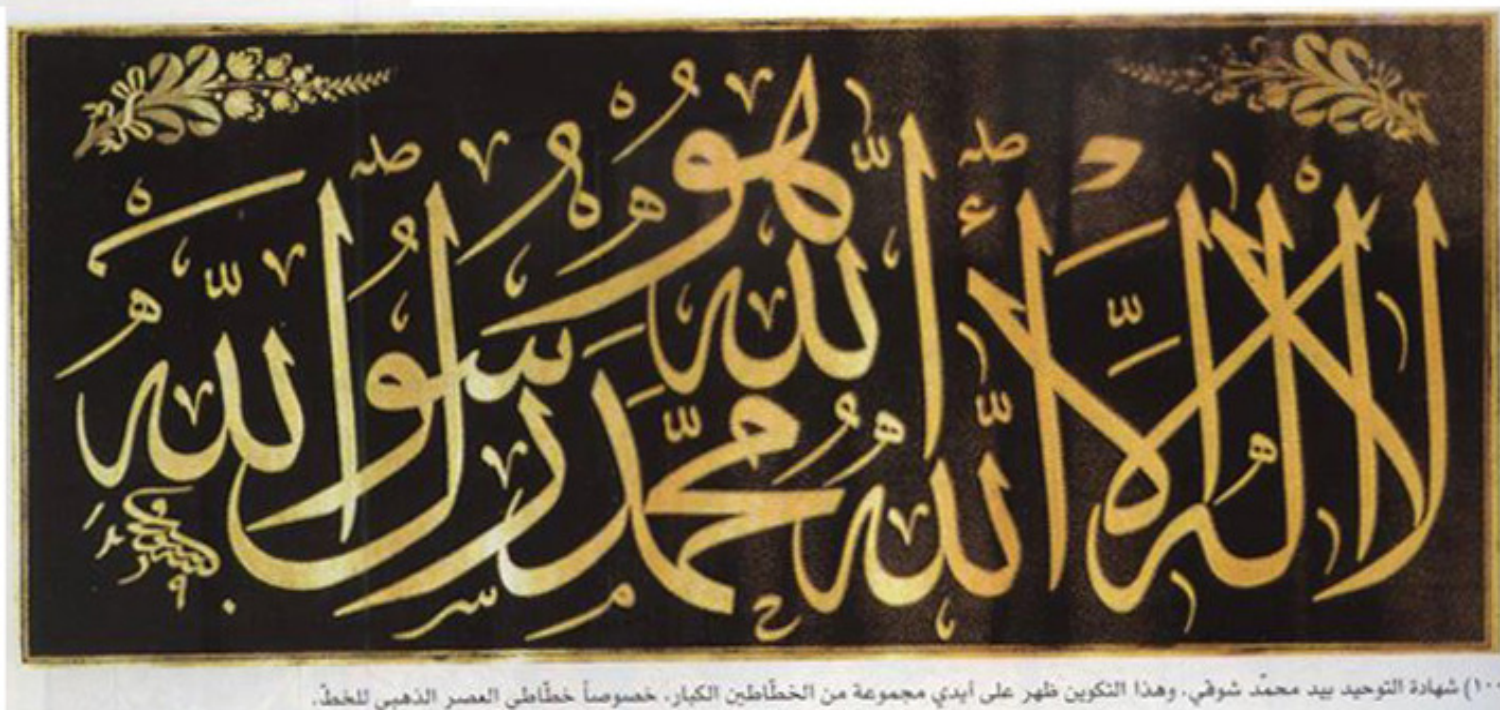 لا اله الا الله الله هو محمد رسول الله
شهادة التوحيد بيد محمّد شوقي، وهذا التكوين ظهر على أيدي مجموعة من الخطّاطين الكبار، خصوصاً خطّاطي العصر الذهبي للخطّ.